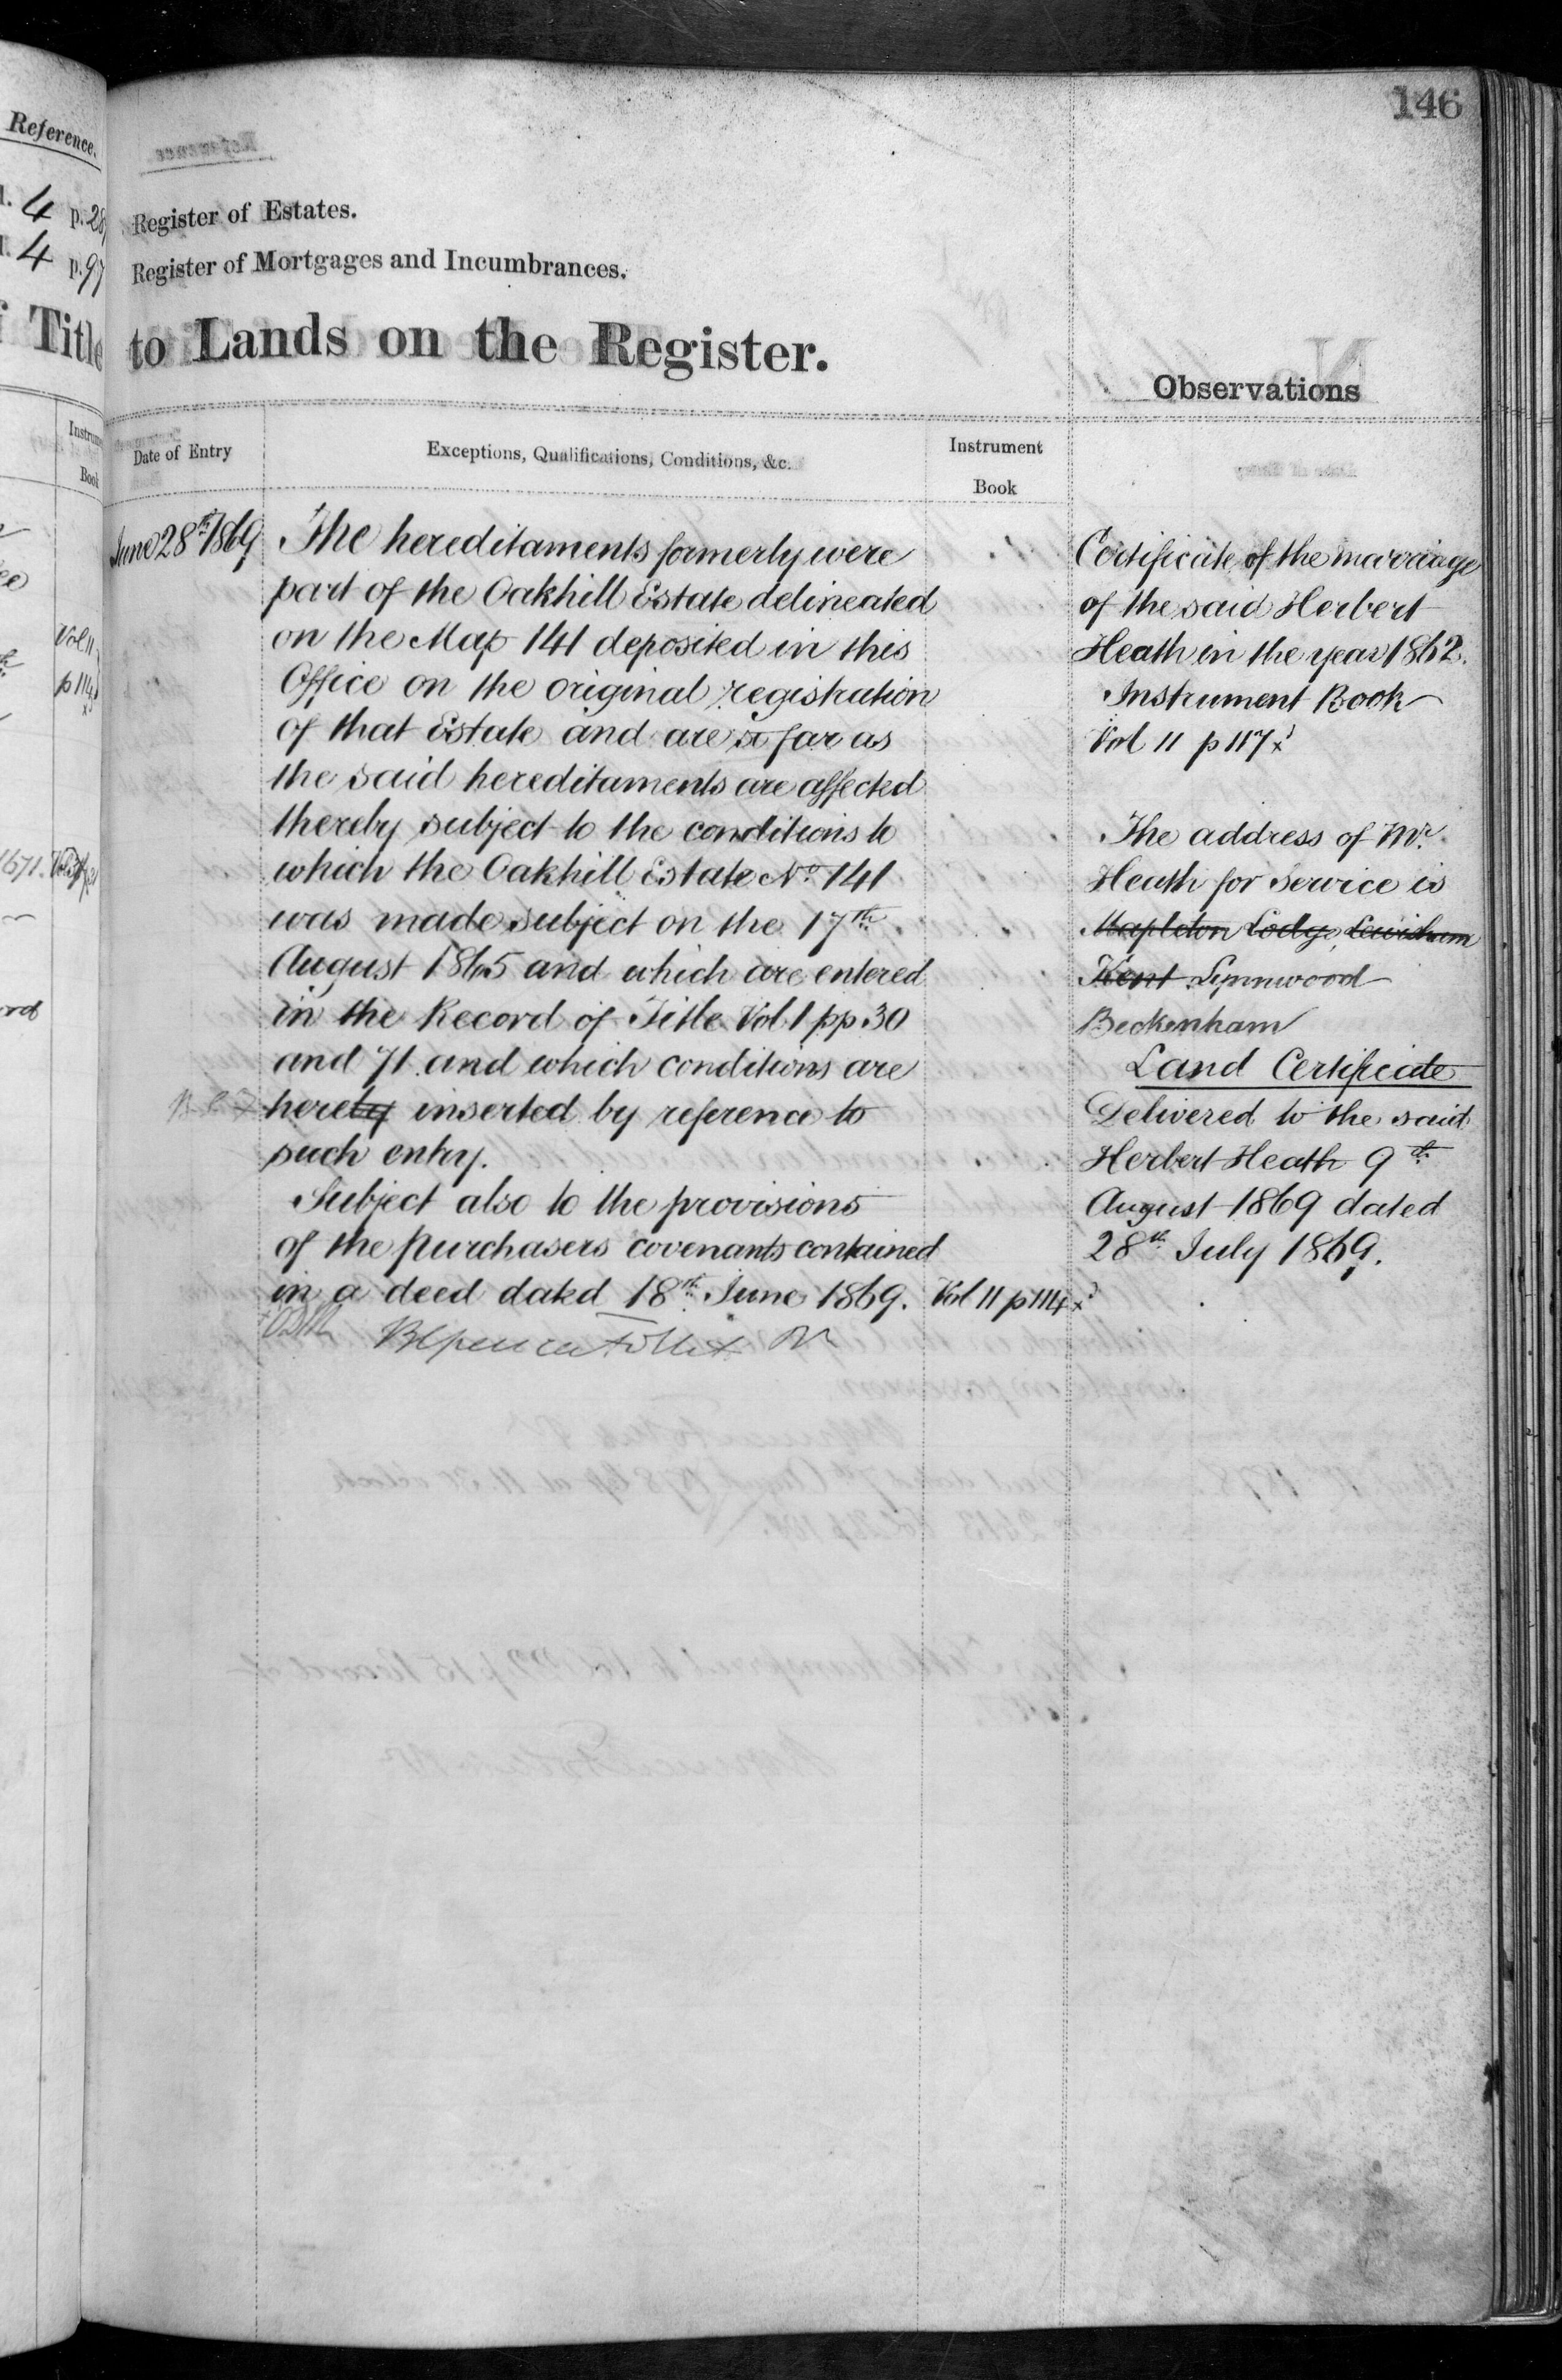 146
Reference.
4 p. 28
4 p. 97
Register of Estates.
Register of Mortgages and Incumbrances.
Title
to Lands on the Register.
Observations
Date of Entry
Exceptions, Qualifications, Conditions, &c.
Instrument
Book
June 28th 1869
The hereditaments formerly were
part of the Oakhill Estate delineated
on the Map 141 deposited in this
Office on the original registration
of that Estate and are so far as
the said hereditaments are affected
thereby subject to the conditions to
which the Oakhill Estate No 141
was made subject on the 17th
August 1865 and which are entered
in the Record of Title Vol 1 pp 30
and 71 and which conditions are
hereby inserted by reference to
such entry.
Subject also to the provisions
of the purchasers covenants contained
in a deed dated 18th June 1869.
Vol 11 p 114 x
Certificate of the marriage
of the said Herbert
Heath in the year 1862.
Instrument Book
Vol 11 p 117 x
The address of Mr
Heath for service is
Mapleton Lodge Lewisham
Kent Lynnwood
Beckenham
Land Certificate
Delivered to the said
Herbert Heath 9th
August 1869 dated
28th July 1869.
Vol 11
p 114
x